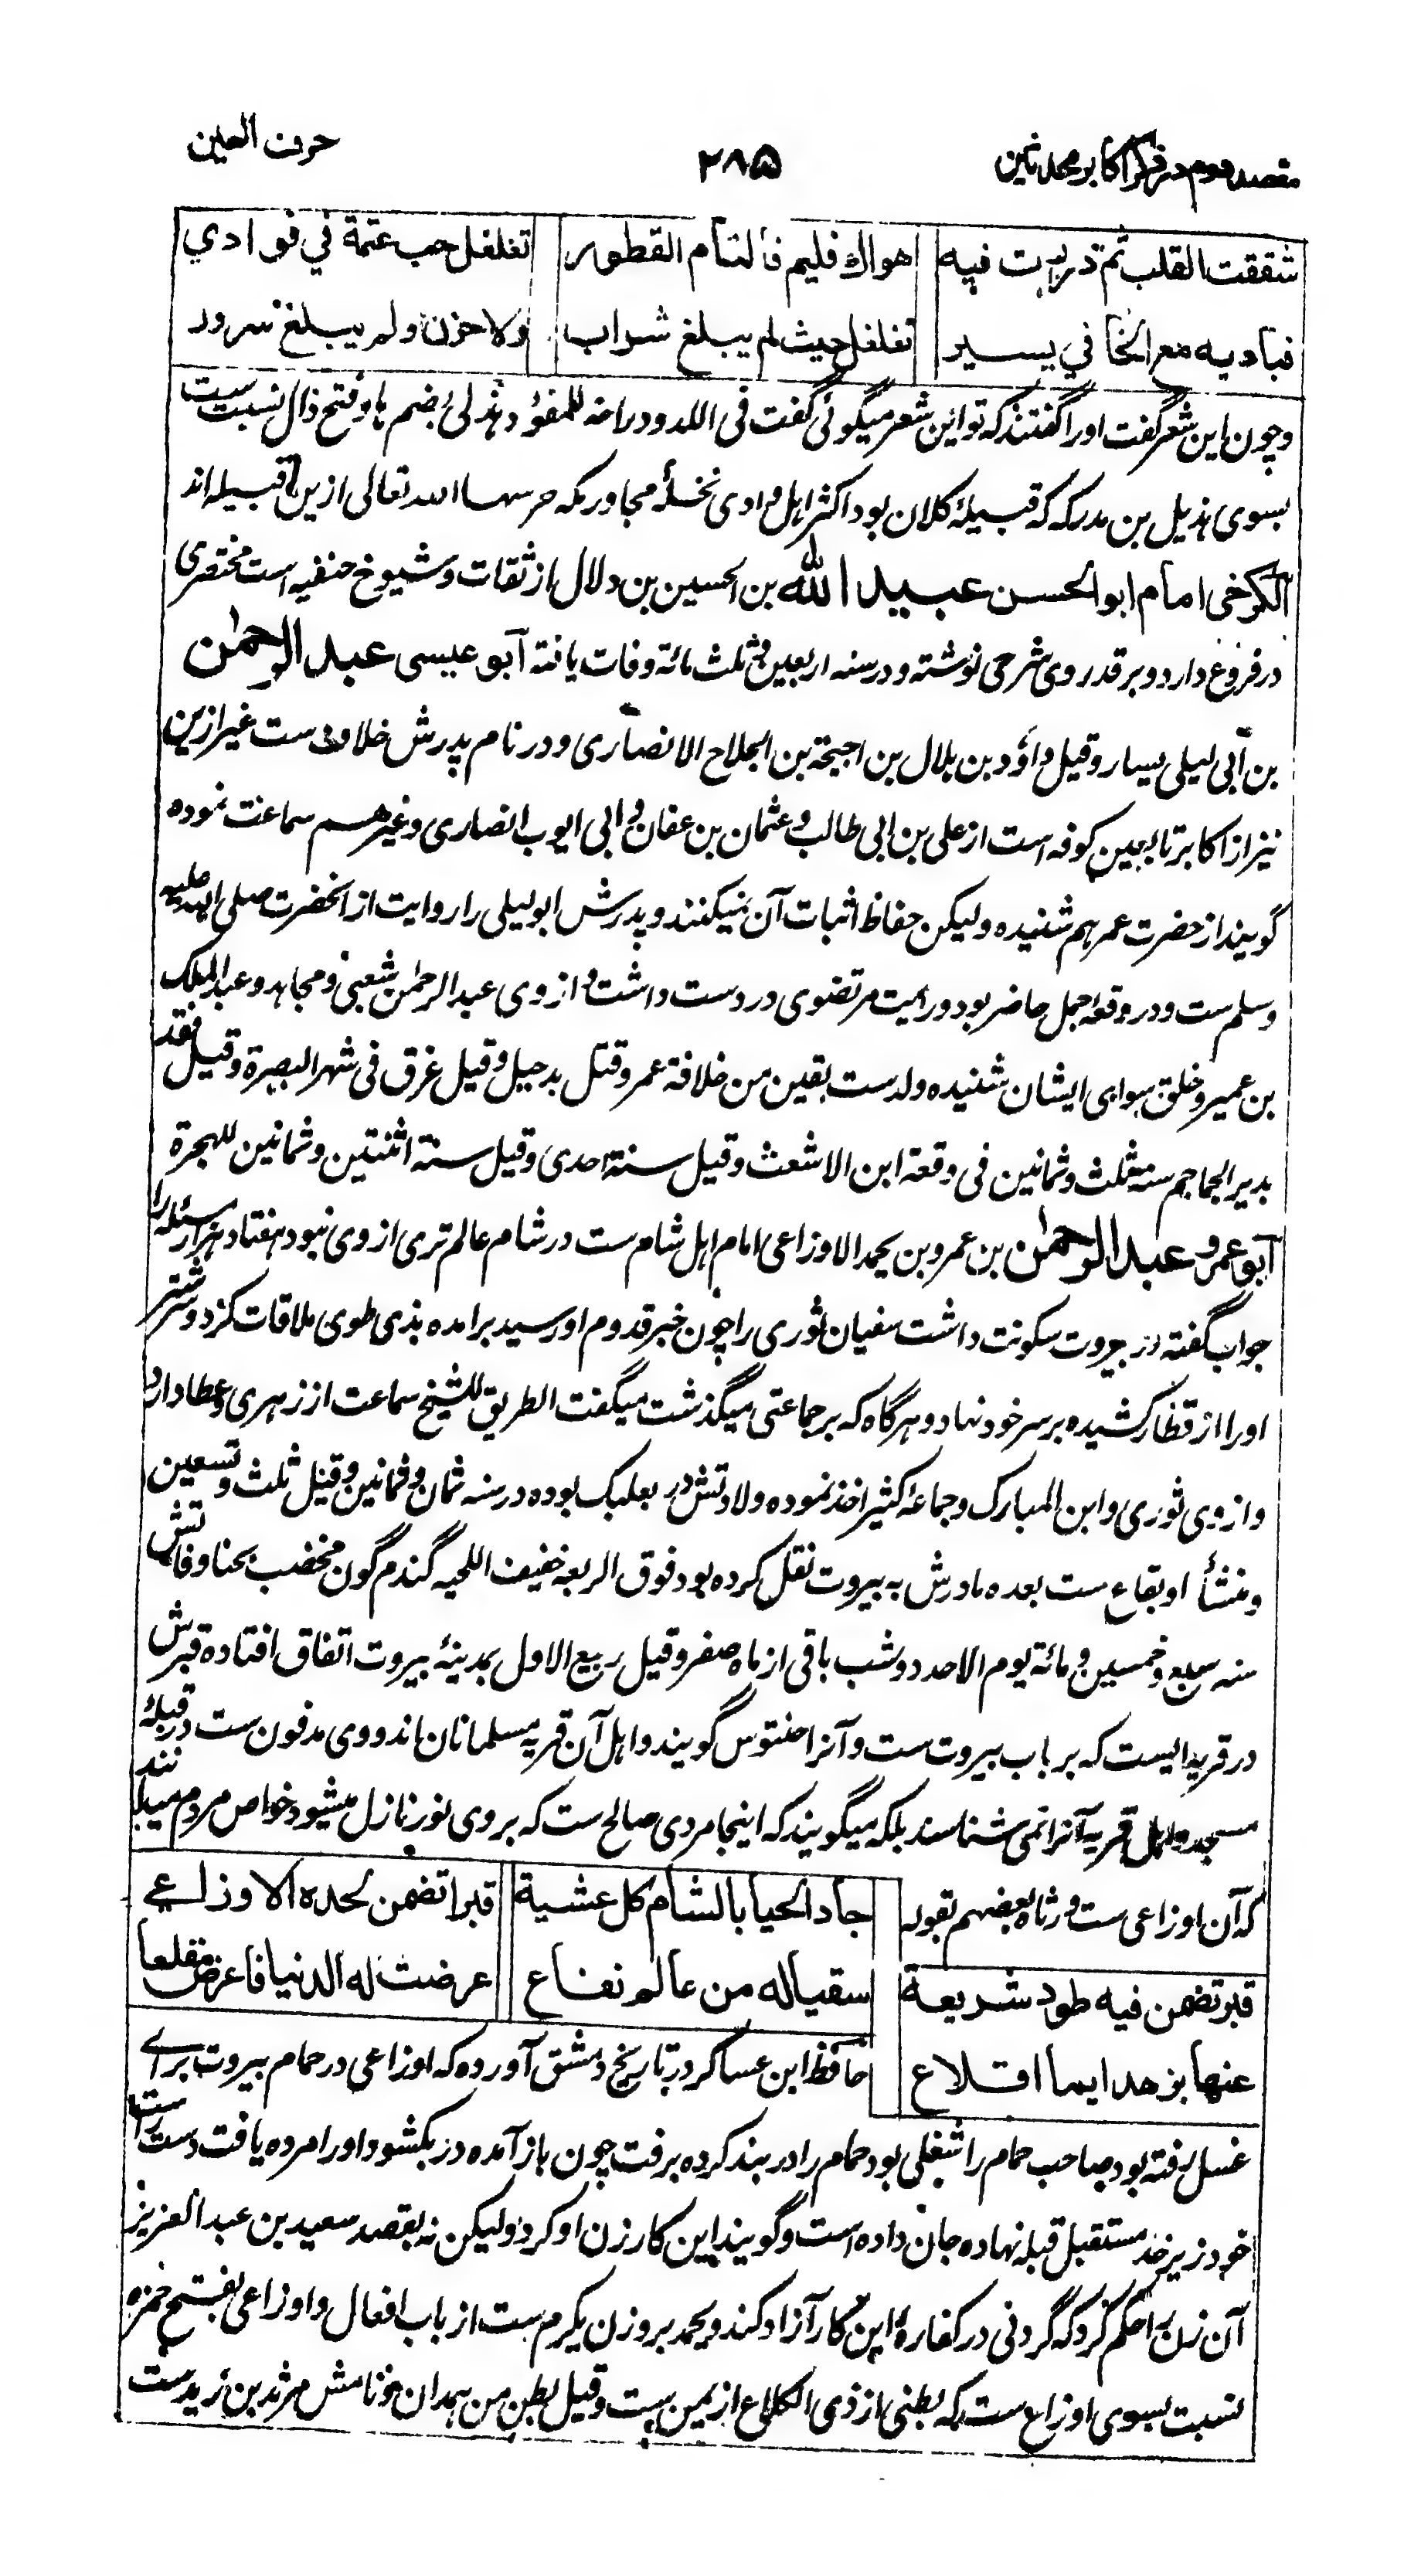 مقصد دوم در ذکر اکابر محدثین ۲۸۵ حرف العین
شققت القلب ثم ذررت فیه هواك فلیم فألتأم القطور تغلغل حب عتمة في فوادي
فبادیه مع الخافي یسیر تغلغل حیث لم یبلغ شراب ولا حزن ولم یبلغ سرور
وچون این شعر گفت اورا گفتند که تو این شعر میگوئی گفت فی اللدود راحة للمفؤد هذلی بضم ها وفتح ذال نسبت ست
بسوی هذیل بن مدرکه که قبیلۂ کلان بود اکثر اهل وادی نخلۂ مجاور مکه حرسها الله تعالی ازین قبیله اند
الکرخی امام ابوالحسن عبید الله بن الحسین بن دلال از ثقات وشیوخ حنفیه است مختصری
در فروع دارد وبر قدروی شرحی نوشته ودر سنه اربعین وثلث مائة وفات یافته آبو عیسی عبد الرحمٰن
بن آبی لیلی یسار وقیل داؤد بن بلال بن احیحة بن الجلاح الانصاری ودر نام پدرش خلاف ست غیر ازین
نیز از اکابر تابعین کوفه است از علی بن ابی طالب وعثمان بن عفان وابی ایوب انصاری وغیرهم سماعت نموده
گویند از حضرت عمر هم شنیده ولیکن حفاظ اثبات آن نمیکنند وپدرش ابولیلی را روایت از آنحضرت صلی الله علیه
وسلم ست ودر وقعۂ جمل حاضر بود ورایت مرتضوی در دست داشت واز وی عبد الرحمٰن شعبی ومجاهد وعبد الملک
بن عمیر وخلق سوای ایشان شنیده ولد ست بقین من خلافة عمر وقتل بدجیل وقیل غرق فی شهر البصرة وقیل فقد
بدیر الجماجم سنة ثلث وثمانین فی وقعة ابن الاشعث وقیل سنة احدی وقیل سنة اثنتین وثمانین للهجرة
آبو عمرو عبد الرحمٰن بن عمرو بن یحمد الاوزاعی امام اهل شام ست در شام عالم تری از وی نبود هفتاد هزار مسئله را
جواب گفته در بیروت سکونت داشت سفیان ثوری را چون خبر قدوم او رسید برامده بذی طوی ملاقات کرد وسر شتر
اورا از قطار کشیده بر سر خود نهاد وهرگاه که بر جماعتی میگذشت میگفت الطریق للشیخ سماعت از زهری وعطا دارد
واز وی ثوری وابن المبارک وجماعۂ کثیر اخذ نموده ولادتش در بعلبک بوده در سنه ثمان وثمانین وقیل ثلث وتسعین
ومنشأ او بقاع ست بعده مادرش به بیروت نقل کرده بود فوق الربعه خفیف اللحیه گندم گون مخضب بحنا وفاتش
سنه سبع وخمسین ومائة یوم الاحد دو شب باقی از ماه صفر وقیل ربیع الاول بمدینۂ بیروت اتفاق افتاده قبرش
در قریه ایست که بر باب بیروت ست وآنرا حنتوس گویند واهل آن قریه مسلمانان اند ووی مدفون ست در قبلۂ
مسجد واهل قریه آنرا نمی شناسند بلکه میگویند که اینجا مردی صالح ست که بر وی نور نازل میشود خواص مردم میدانند
که آن اوزاعی ست ورثاه بعضهم بقوله جاد الحیا بالشام کل عشیة قبرا تضمن لحده الاوزاعي
قبر تضمن فیه طود شریعة سقیا له من عالم نفاع عرضت له الدنیا فاعرض مقلعا
عنها بزهد ایما اقلاع حافظ ابن عساکر در تاریخ دمشق آورده که اوزاعی در حمام بیروت برای
غسل رفته بود صاحب حمام را شغلی بود حمام را در بند کرده برفت چون باز آمده در بکشود اورا مرده یافت دست راست را
خود زیر خد مستقبل قبله نهاده جان داده است وگویند این کار زن او کرد ولیکن نه بقصد سعید بن عبد العزیز
آن زن را حکم کرد که گردنی در کفارۂ این کار آزاد کند ویحمد بر وزن یکرم ست از باب افعال واوزاعی بفتح همزه
نسبت بسوی اوزاع ست که بطنی از ذی الکلاع از یمن ست وقیل بطن من همدان ونامش مرثد بن زید ست